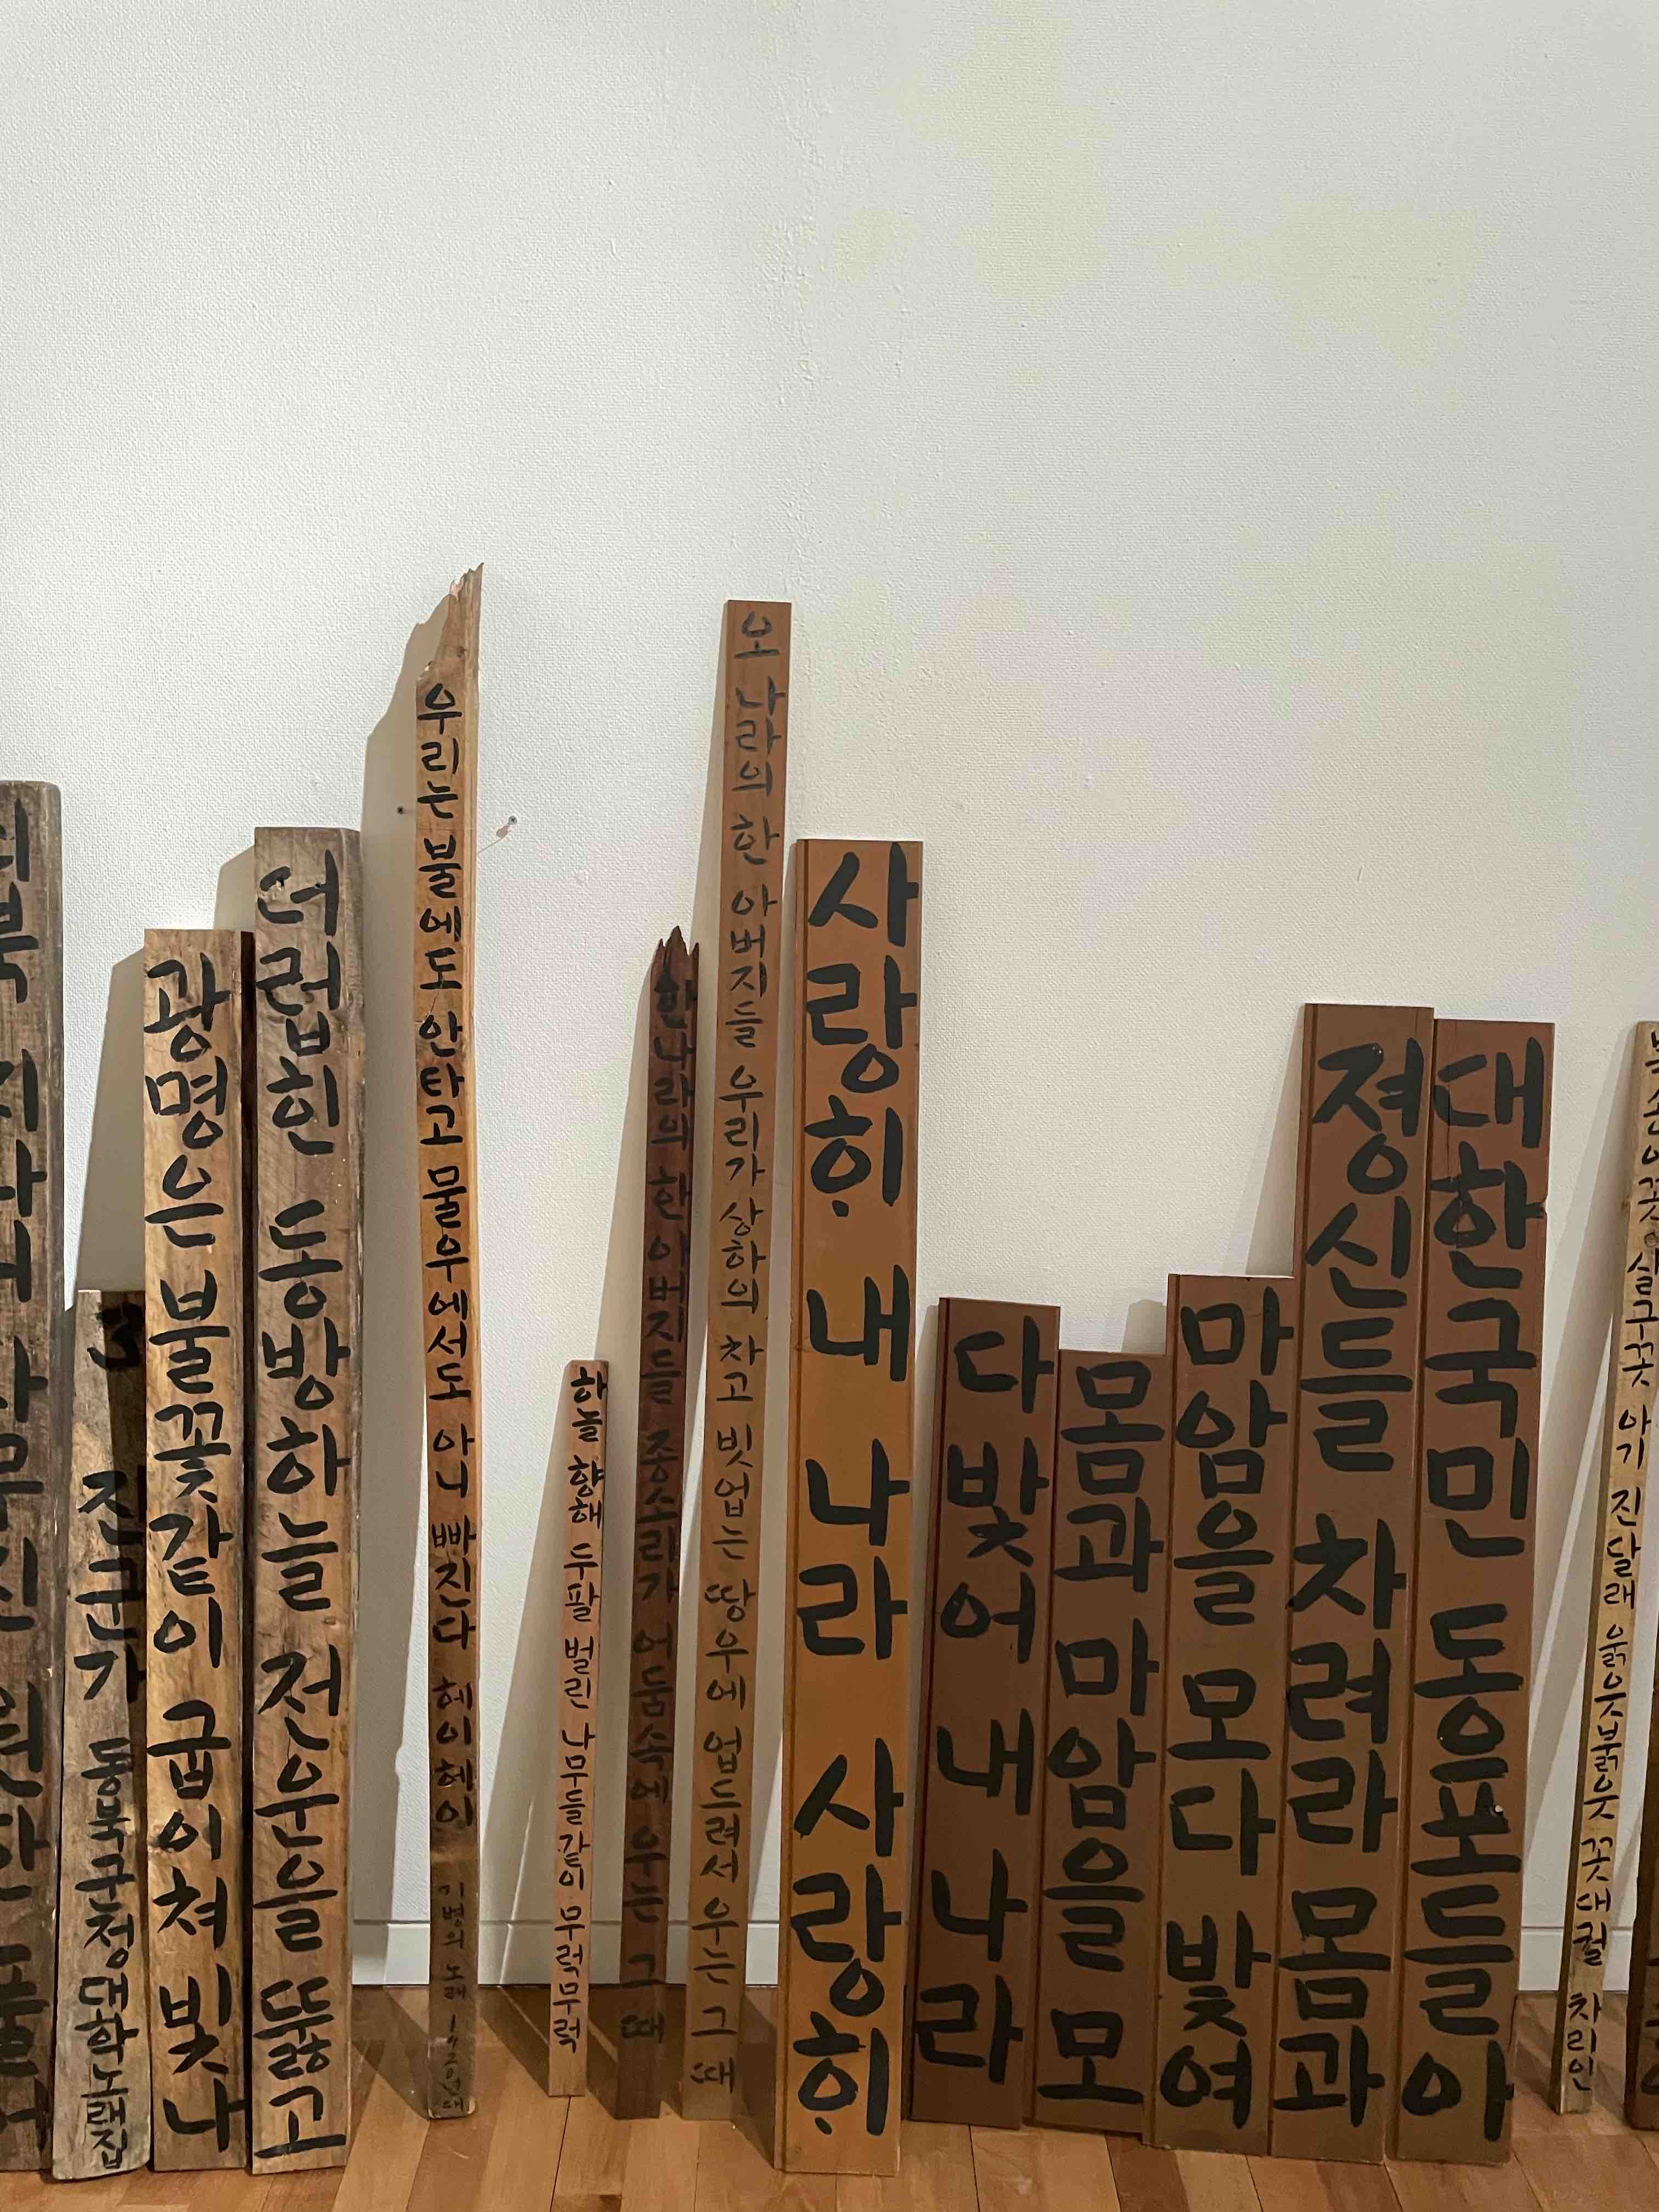 진군가 동북군정대학노래집
광명은 불꽃같이 굽이쳐 빛나
더럽힌 동방하늘 전운을 뚫고
우리는 불에도 안타고 물우에서도 아니 빠진다 헤이헤이 기병의 노래
하늘 향해 두팔 벌린 나무들같이 무럭무럭
한나라의 한 아버지들 종소리가 어둠속에 우는 그때
오 나라의 한 아버지들 우리가 상하의 차고 빗업는 땅우에 업드려서 우는 그때
사랑히 내 나라 사랑히
다 밫어 내 나라
몸과 마암을 모
마암을 모다 밫여
졍신들 차려라 몸과
대한국민 동응포들아
꽃 살구꽃 아기 진달래 울긋붉읏 꽃대궐 차리인